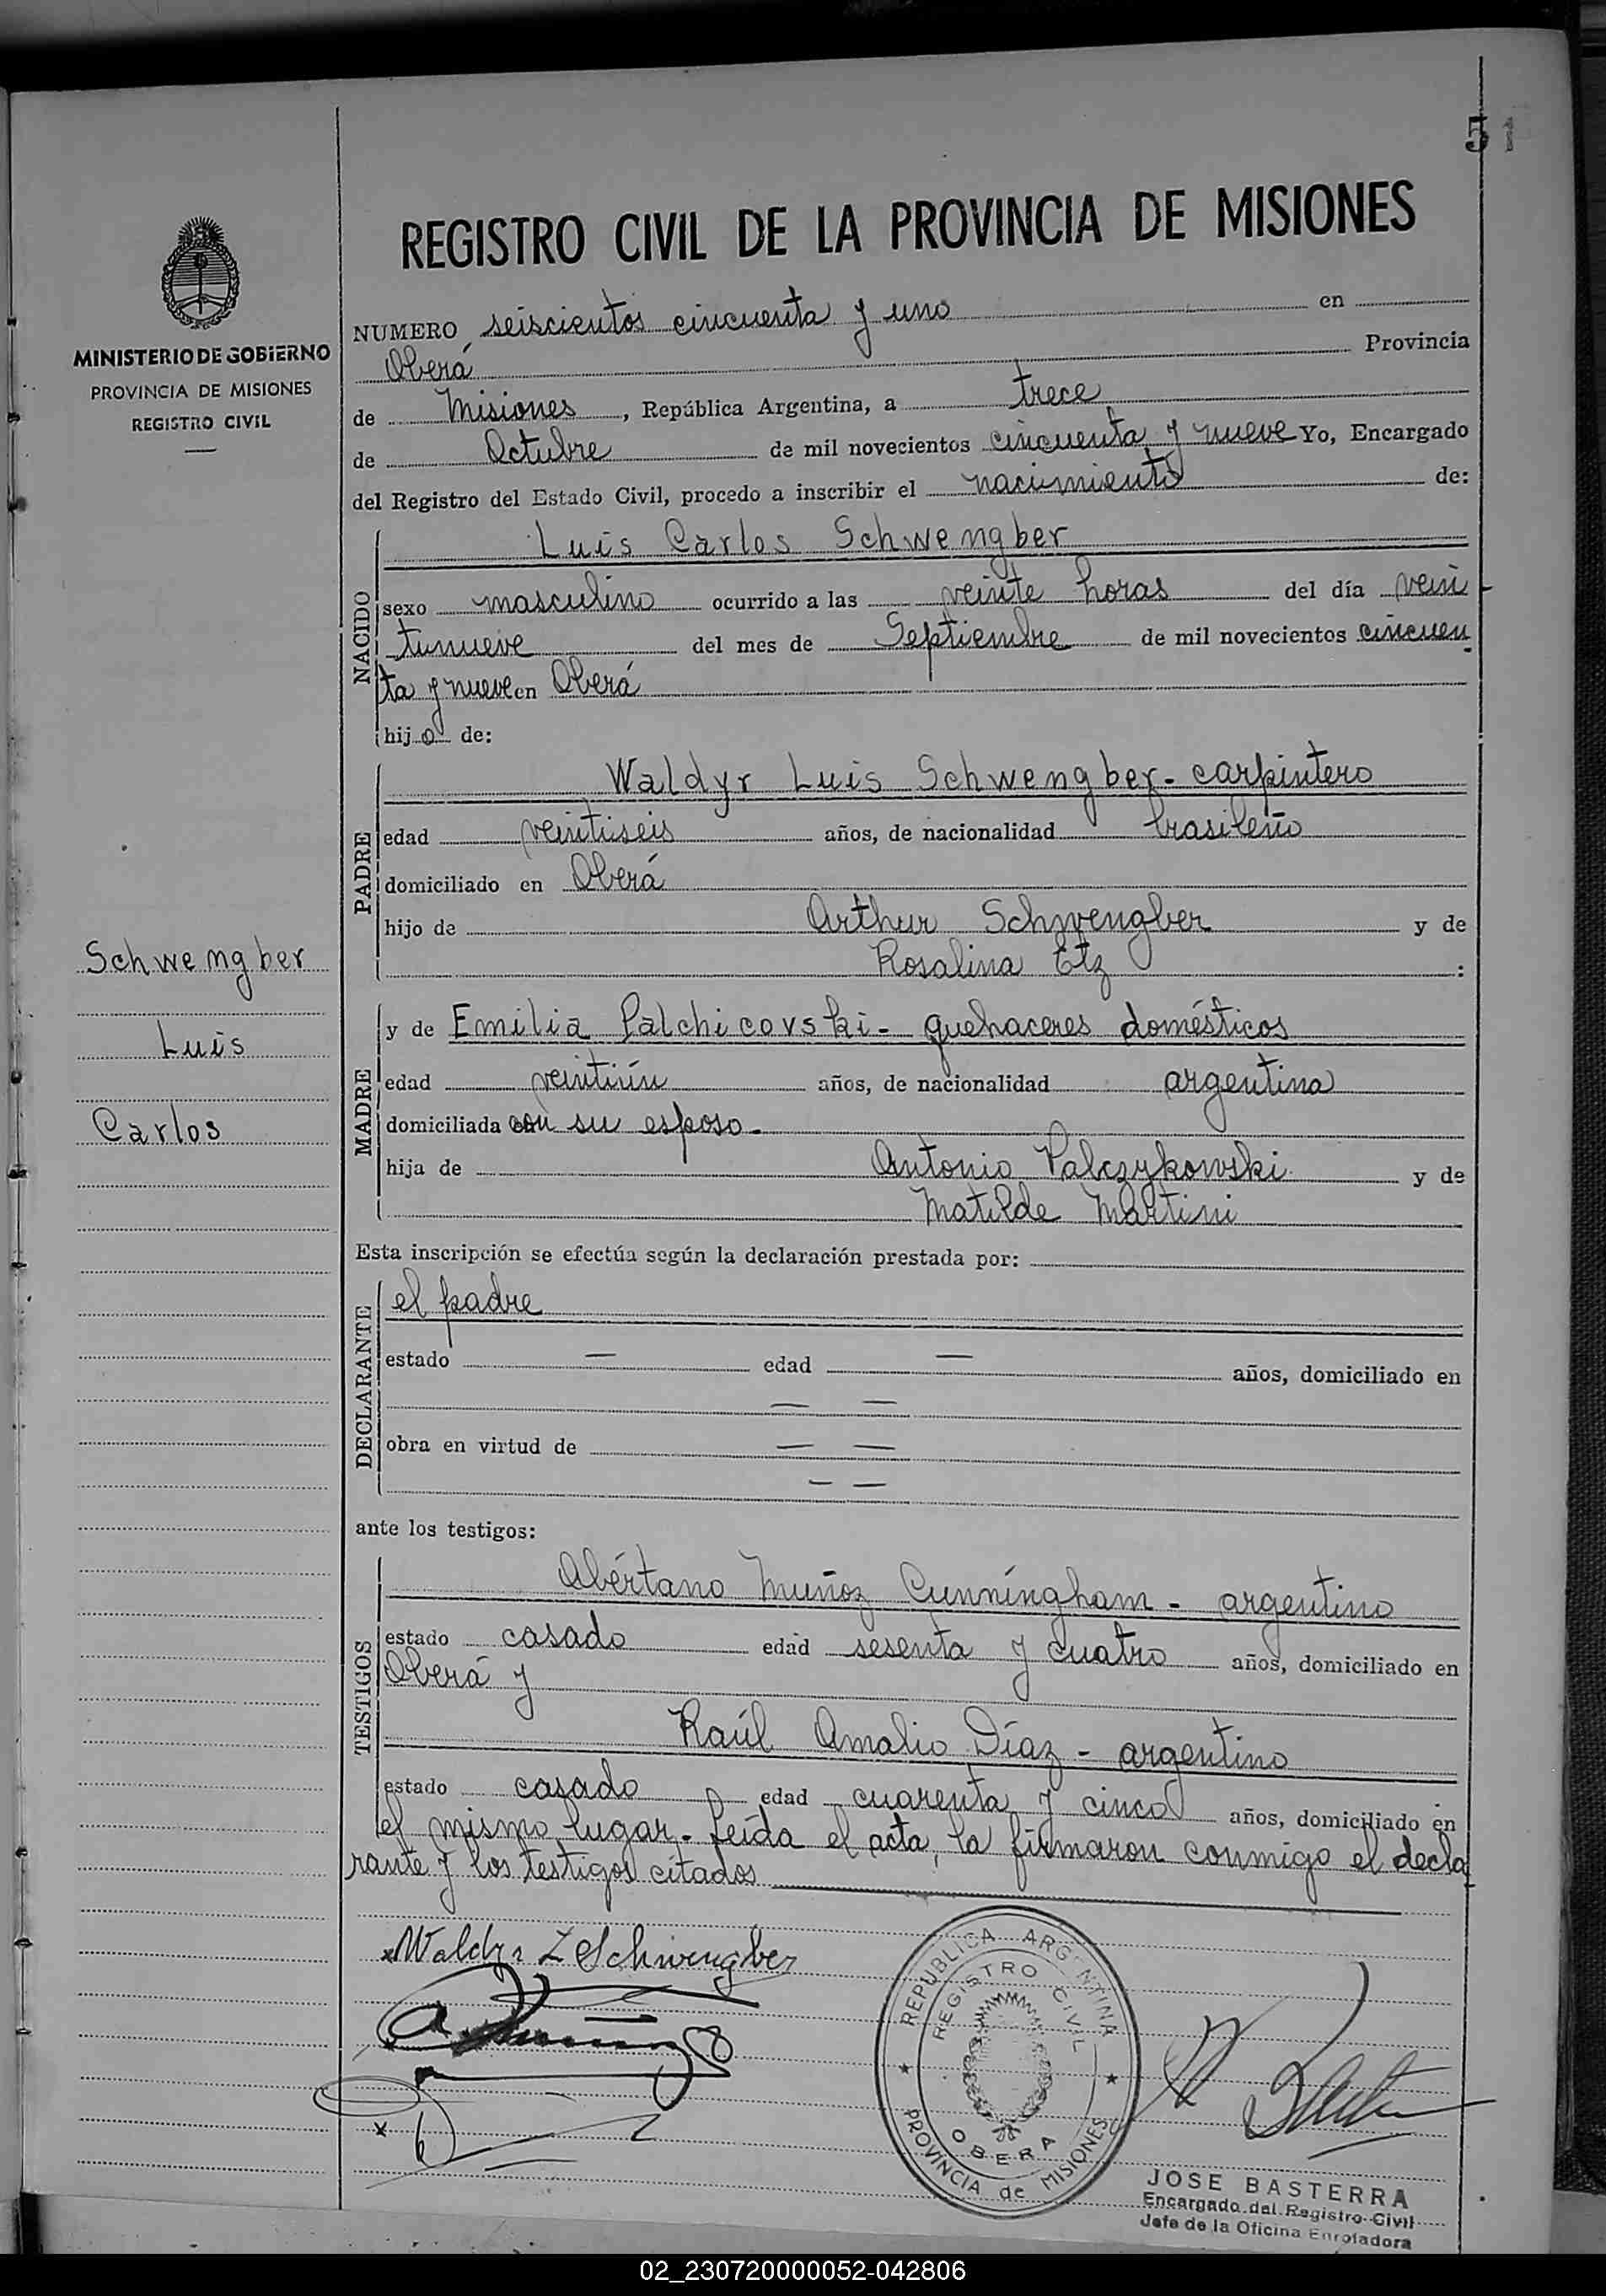 51
REGISTRO CIVIL DE LA PROVINCIA DE MISIONES
MINISTERIO DE GOBIERNO
PROVINCIA DE MISIONES
REGISTRO CIVIL
NUMERO seiscientos cincuenta y uno en
Oberá Provincia
de Misiones, República Argentina, a trece
de Octubre de mil novecientos cincuenta y nueve Yo, Encargado
del Registro del Estado Civil, procedo a inscribir el nacimiento de:
NACIDO
Luis Carlos Schwengber
sexo masculino ocurrido a las veinte horas del día vein
tinueve del mes de Septiembre de mil novecientos cincuen
ta y nueve en Oberá
hijo de:
PADRE
Waldyr Luis Schwengber - carpintero
edad veintiseis años, de nacionalidad brasileño
domiciliado en Oberá
hijo de Arthur Schwengber y de
Rosalina Etz :
Schwengber
Luis
Carlos
MADRE
y de Emilia Palchicovski - quehaceres domésticos
edad veintiún años, de nacionalidad argentina
domiciliada con su esposo.
hija de Antonio Palczykowski y de
Matilde Martini
Esta inscripción se efectúa según la declaración prestada por:
DECLARANTE
el padre
estado — edad — años, domiciliado en
— —
obra en virtud de — —
— —
ante los testigos:
TESTIGOS
Obértano Muñoz Cunníngham - argentino
estado casado edad sesenta y cuatro años, domiciliado en
Oberá y
Raúl Amalio Díaz - argentino
estado casado edad cuarenta y cinco años, domiciliado en
el mismo lugar. Leída el acta, la firmaron conmigo el decla
rante y los testigos citados
x Waldyr L Schwengber
x
REPUBLICA ARGENTINA
REGISTRO CIVIL
OBERA
PROVINCIA de MISIONES
JOSE BASTERRA
Encargado del Registro Civil
Jefe de la Oficina Enroladora
02_230720000052-042806